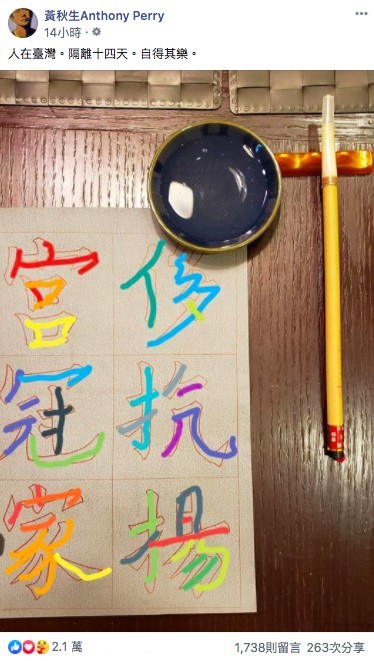 黃秋生Anthony Perry
14小時 ·
人在臺灣。隔離十四天。自得其樂。
侈抗揚
宮冠家
2.1 萬
1,738則留言 263次分享